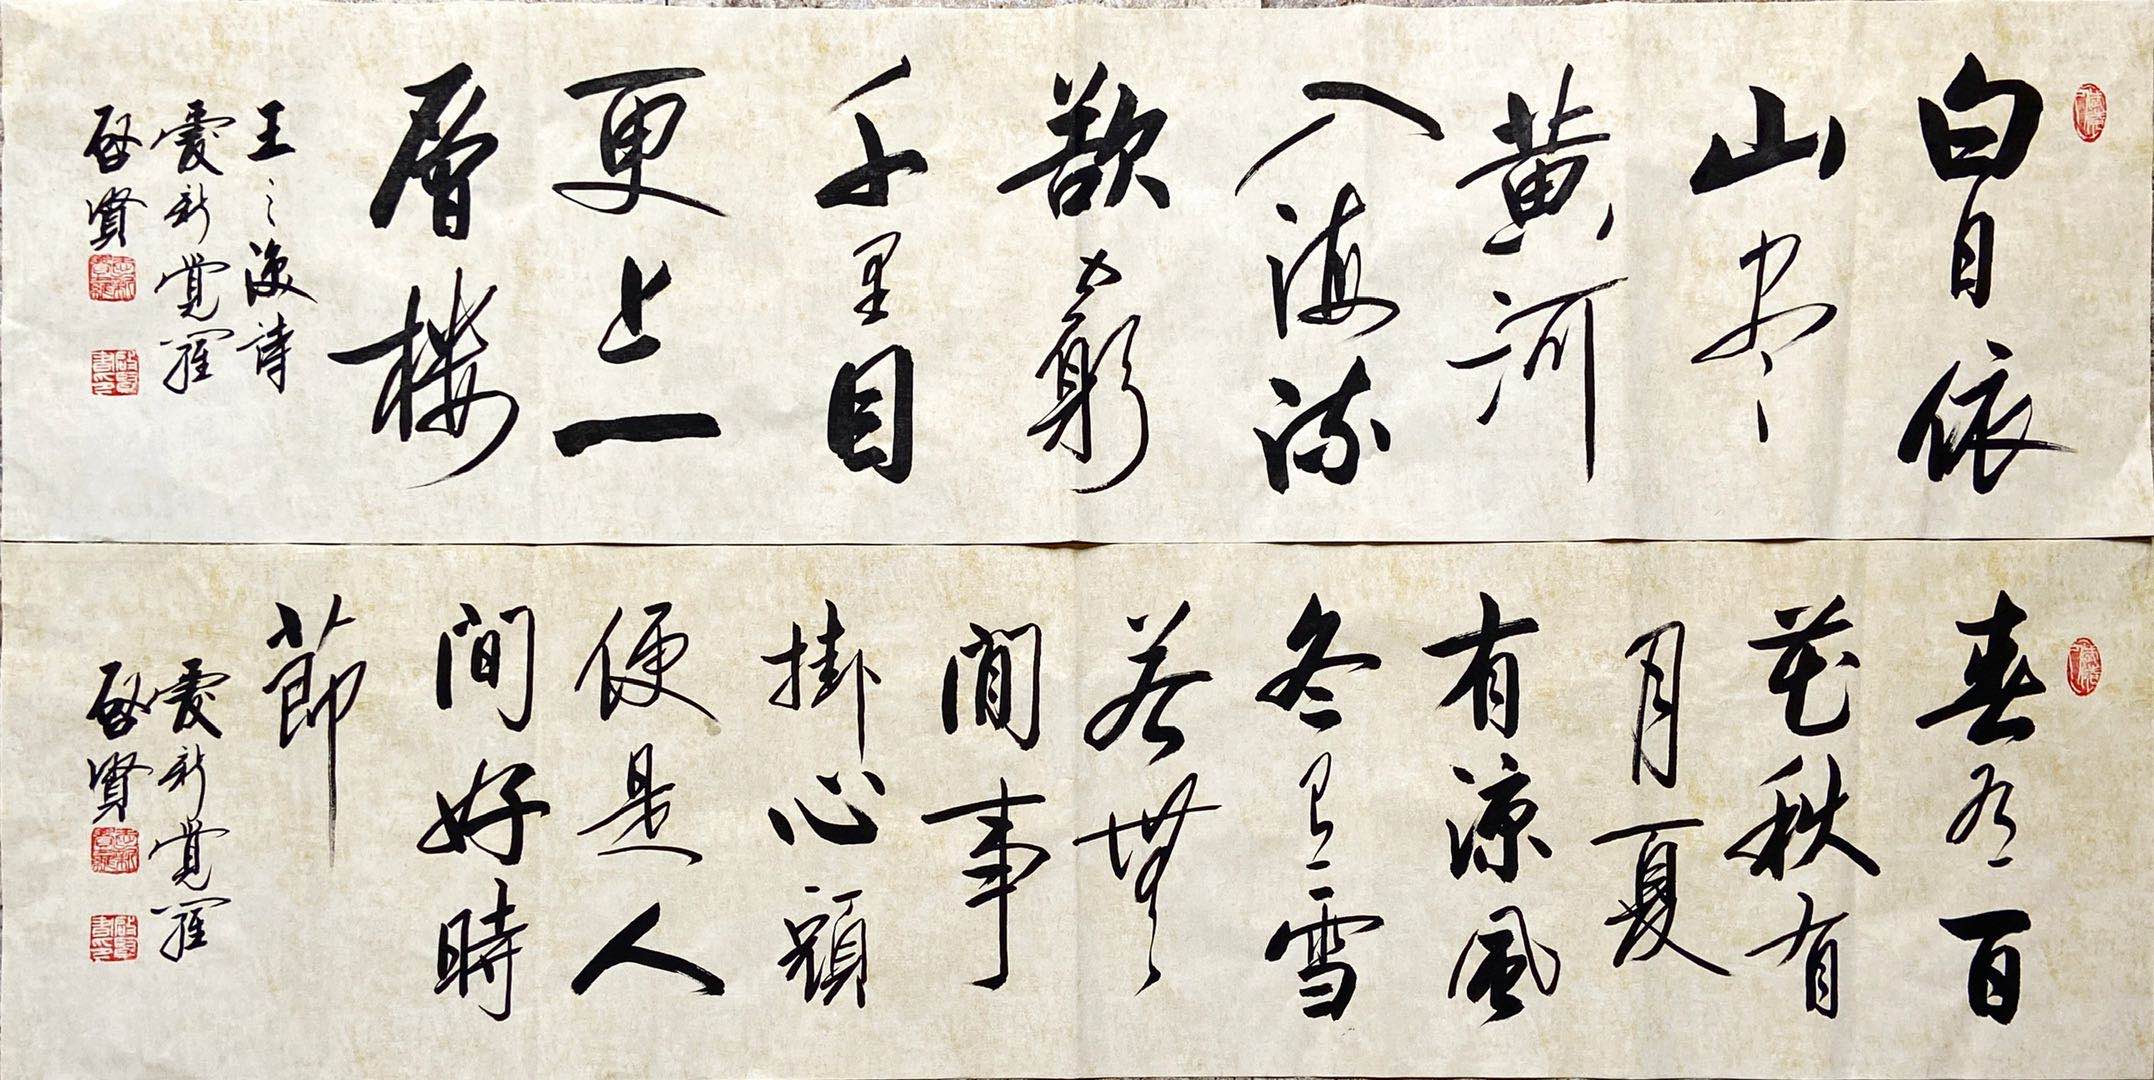 白日依
山尽
黄河
入海流
欲窮
千里目
更上一
層楼
王之渙詩
愛新覚羅
啓賢
春有百
花秋有
月夏
有涼風
冬有雪
若無
閒事
掛心頭
便是人
間好時
節
愛新覚羅
啓賢